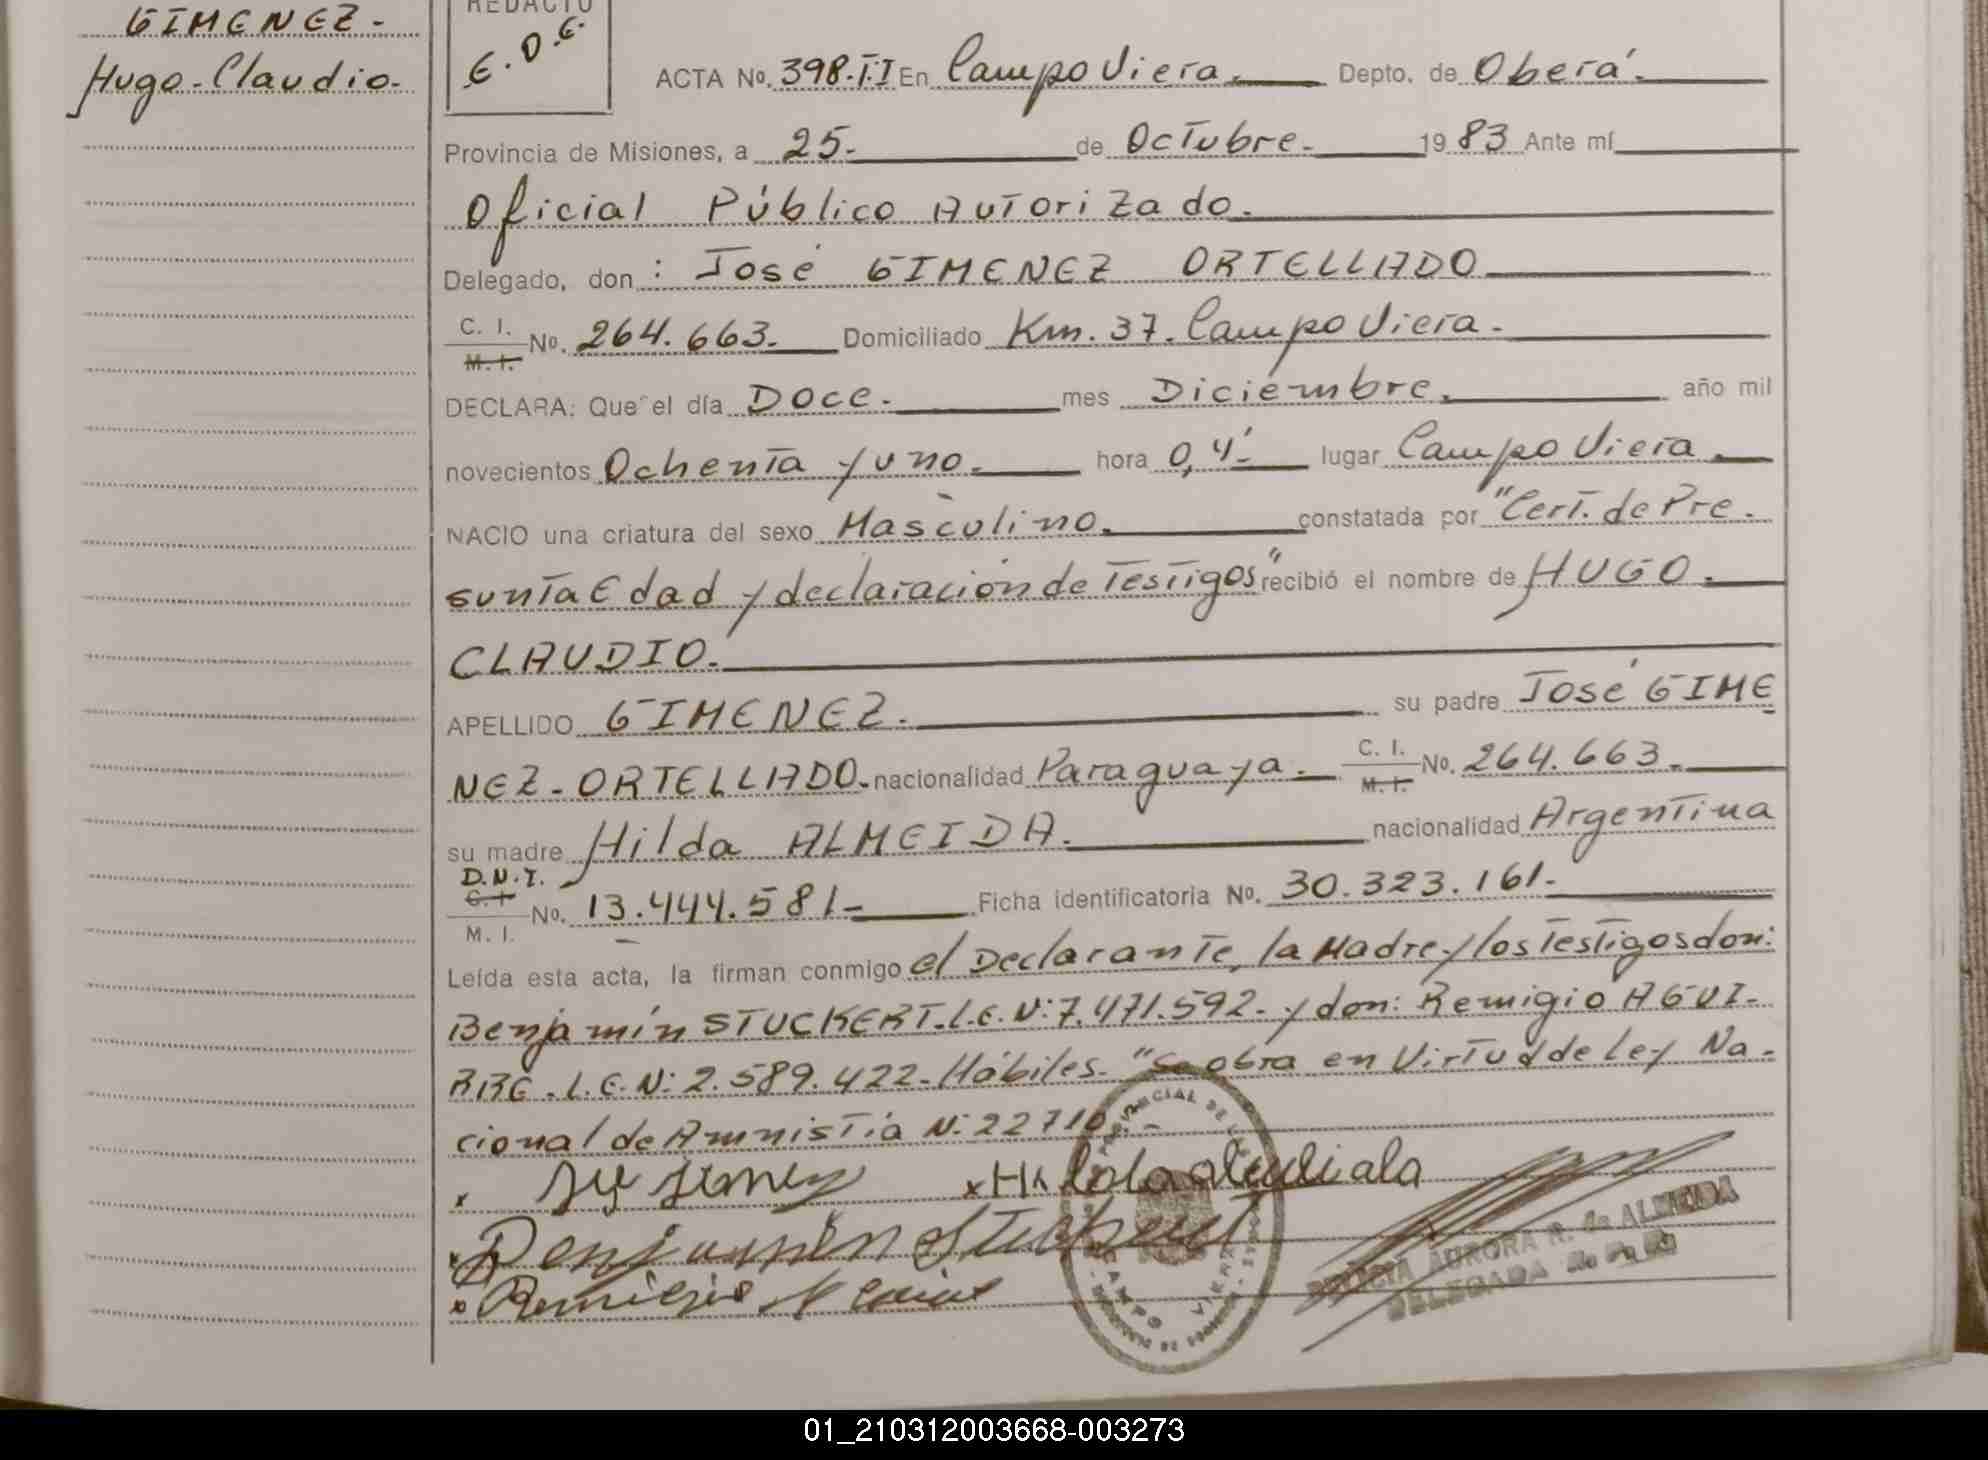 GIMENEZ.
Hugo-Claudio.
REDACTO
E.D.E.
ACTA No. 398.T.I En Campo Viera. Depto. de Oberá.
Provincia de Misiones, a 25. de Octubre. 1983 Ante mí
Oficial Público Autorizado.
Delegado, don: José GIMENEZ ORTELLADO
C. I.
M. I.
No. 264.663. Domiciliado Km. 37. Campo Viera.
DECLARA: Que el día Doce. mes Diciembre. año mil
novecientos Ochenta y uno. hora 0,4. lugar Campo Viera.
NACIO una criatura del sexo Masculino. constatada por "Cert. de Pre.
sunta Edad y declaración de Testigos" recibió el nombre de HUGO.
CLAUDIO.
APELLIDO GIMENEZ. su padre José GIME
NEZ-ORTELLADO. nacionalidad Paraguaya. C. I. M. I. No. 264.663.
su madre Hilda ALMEIDA. nacionalidad Argentina
D.N.I.
C. I.
M. I.
No. 13.444.581- Ficha identificatoria No. 30.323.161-
Leída esta acta, la firman conmigo el Declarante, la Madre y los Testigos don:
Benjamín STUCKERT. L.E. N: 7.471.592. y don: Remigio AGUI-
RRE. L.E. N: 2.589.422. Hábiles. "Se obra en Virtud de Ley Na-
cional de Amnistía N: 22710.-
x
x Hilda
x Benjamin Stuckert
x Remigio
PROVINCIAL DE
CAMPO VIERA
AURORA R. de ALMEIDA
DELEGADA
01_210312003668-003273